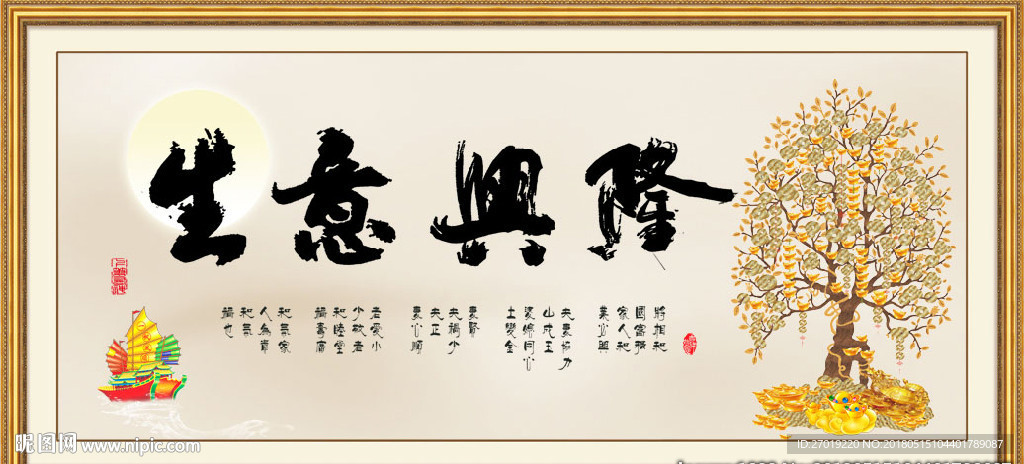 生意興隆
將相和
國富強
家人和
業必興
夫妻協力
山成玉
婆媳同心
土變金
妻賢
夫禍少
夫正
妻必順
老愛小
少敬老
和睦堂
福壽廣
和氣家
人為貴
和氣
福也
昵图网 www.nipic.com
ID:27019220 NO:20180515104401789087